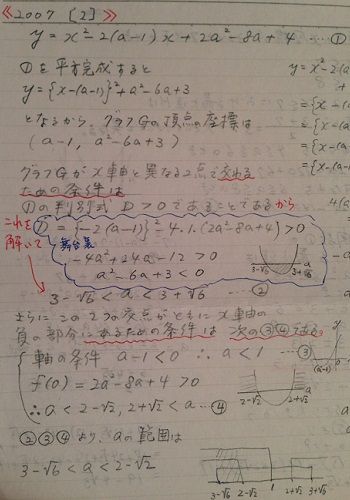 《2007 [2]》
y = x² - 2(a-1)x + 2a² - 8a + 4 … ①
①を平方完成すると
y = {x-(a-1)}² + a² - 6a + 3
となるから、グラフGの頂点の座標は
(a-1, a² - 6a + 3)
グラフGがx軸と異なる2点で交わる
ための条件は
①の判別式 D > 0 であることであるから
これを解いて
D = {-2(a-1)}² - 4·1·(2a² - 8a + 4) > 0
舞台裏
-4a² + 24a - 12 > 0
a² - 6a + 3 < 0
3-√6 3+√6 a
3 - √6 < a < 3 + √6 … ②
さらに この2つの交点がともにx軸の
負の部分にあるための条件は 次の③④である。
軸の条件 a-1 < 0 ∴ a < 1 … ③
f(0) = 2a² - 8a + 4 > 0
∴ a < 2-√2, 2+√2 < a … ④
2-√2 2+√2 a
②③④より、aの範囲は
3-√6 < a < 2-√2
3-√6 2-√2 1 2+√2 3+√6
y = x² - 2(a
= {x - (
= {x - (a
= {x - (a
= {x - (a